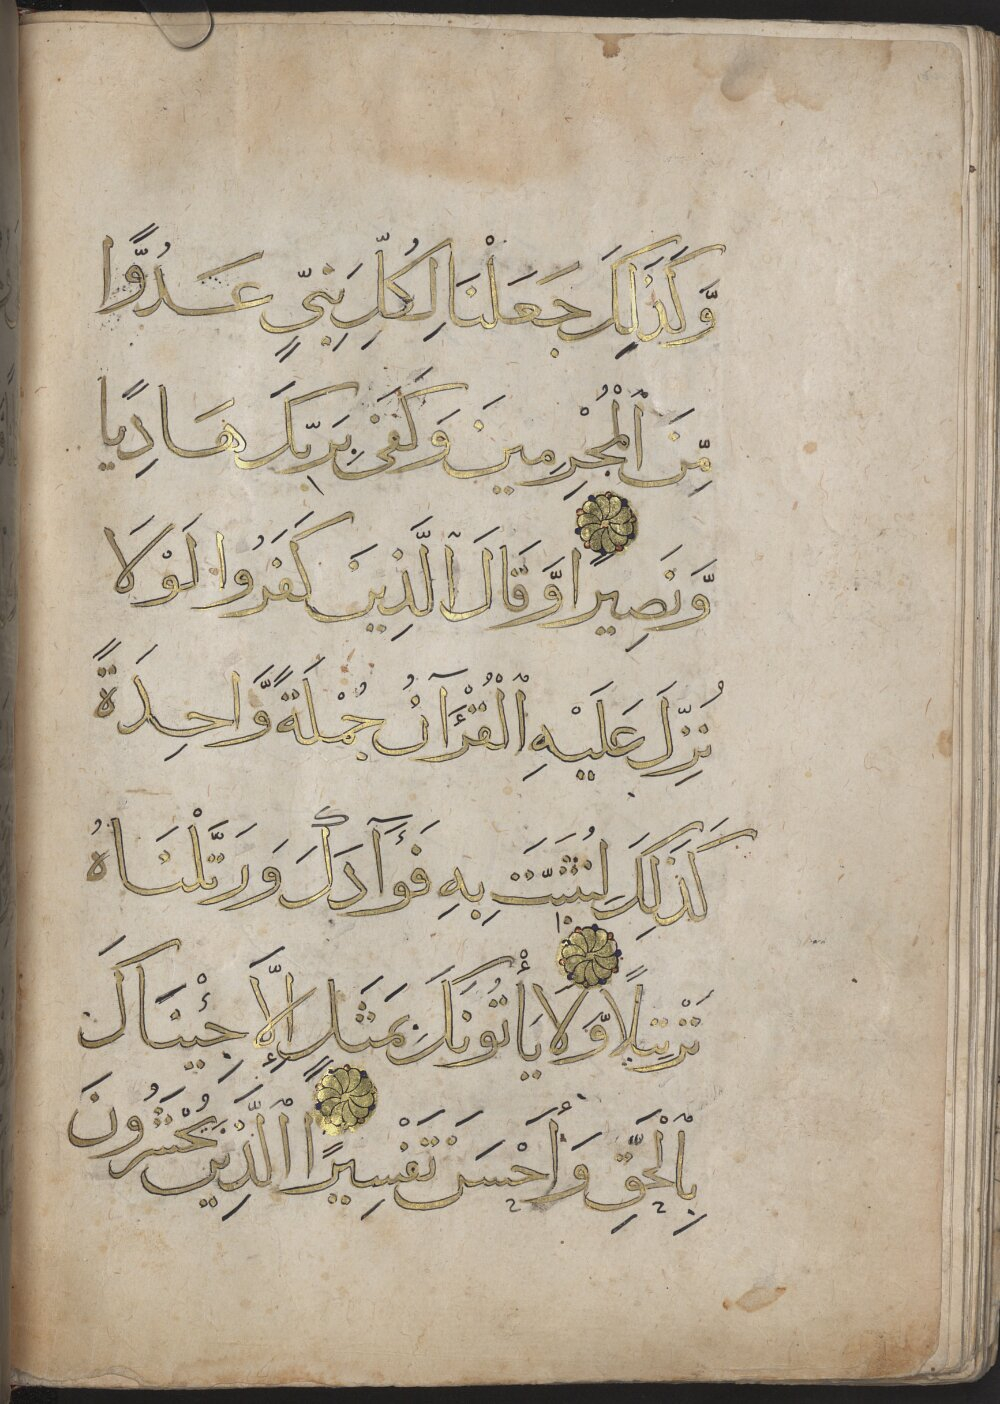 وَّكَذَلِكَ جَعَلْنَا لِكُلِّ نَبِيٍّ عَدُوًّا
مِّنَ الْمُجْرِمِينَ وَكَفَى بِرَبِّكَ هَادِيًا
وَّنَصِيرًا وَّقَالَ الَّذِينَ كَفَرُوا لَوْلَا
نُزِّلَ عَلَيْهِ الْقُرْآنُ جُمْلَةً وَّاحِدَةً
كَذَلِكَ لِنُثَبِّتَ بِهِ فُؤَادَكَ وَرَتَّلْنَاهُ
تَرْتِيلًا وَّلَا يَأْتُونَكَ بِمَثَلٍ إِلَّا جِئْنَاكَ
بِالْحَقِّ وَأَحْسَنَ تَفْسِيرًا الَّذِينَ يُحْشَرُونَ